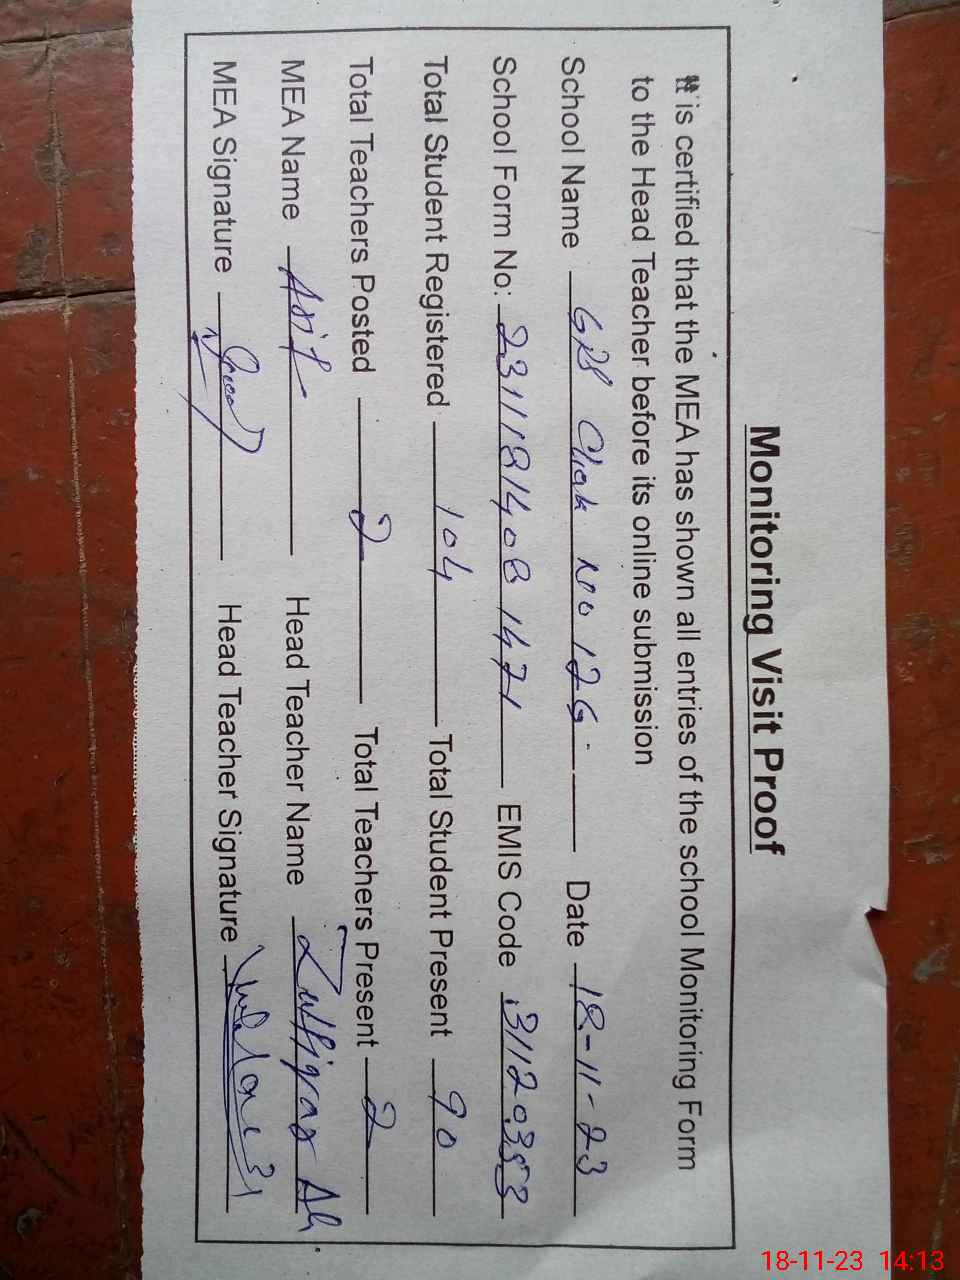 Monitoring Visit Proof
It is certified that the MEA has shown all entries of the school Monitoring Form
to the Head Teacher before its online submission
School Name GPS Chak No 126 Date 18-11-23
School Form No: 23111814081471 EMIS Code 31120353
Total Student Registered 104 Total Student Present 90
Total Teachers Posted 2 Total Teachers Present 2
MEA Name Asif Head Teacher Name Zulfiqar Ali
MEA Signature Head Teacher Signature
18-11-23 14:13